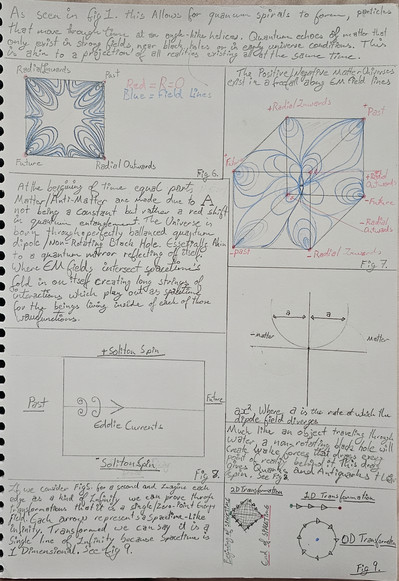 As seen in fig 1. this Allows for quantum spirals to form, particles
that move through time at an angle-like helices. Quantum echoes of matter that
only exist in strong fields, near black holes or in early universe conditions. This
is akin to a projection of all realities existing all at the same time.
Radial Inwards
Past
Red = R=0
Blue = Field Lines
Future
Radial Outwards
Fig 6.
The Positive/Negative Matter Universes
exist in a along EM field lines
+Radial Inwards
+Past
+Future
+Radial
Outwards
-Future
-Radial
Outwards
-Past
-Radial Inwards
Fig 7.
At the beginning of time equal parts,
Matter/Anti-Matter are made due to Λ
not being a constant but rather a red shift
in quantum entanglement. The Universe is
born through perfectly ballanced quantum
dipole/Non-Rotating Black Hole. Essentially Akin
to a quantum mirror reflecting of itself.
Where EM fields intersect spacetime's
fold in on itself creating long strings of
interactions which play out as spacetime
for the beings living inside of each of those
wavefunctions.
a
a
-matter
Matter-
ax², Where a is the rate at which the
dipole field diverges
+Soliton Spin
Past
Future
Eddie Currents
Soliton Spin
Fig 8.
Much like an object traveling through
water, a non-rotating black hole will
create wake forces that draws every
point in reality behind it. This
gives Quarks and Antiquarks their
spin. See fig 8.
If we consider Fig 5. for a second and imagine each
edge as a kind of Infinity we can prove through
transformations that it is a single/zero-point Energy
Field. Each arrows represents a Spacetime-like
Infinity. Transformed we can say it is a
single line of Infinity because Spacetime is
1 Dimensional. See Fig 9.
2D Transformation
1D Transformation
End of Spacetime
0D Transformation
Fig 9.